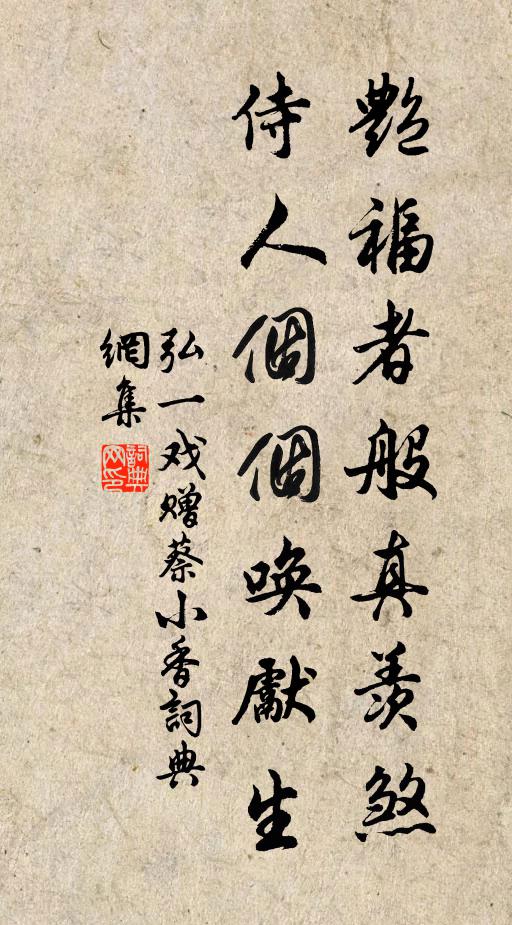 艷福者般真羨煞
侍人個個喚獻生
弘一戏赠蔡小香詞典
網集
詞典
网印